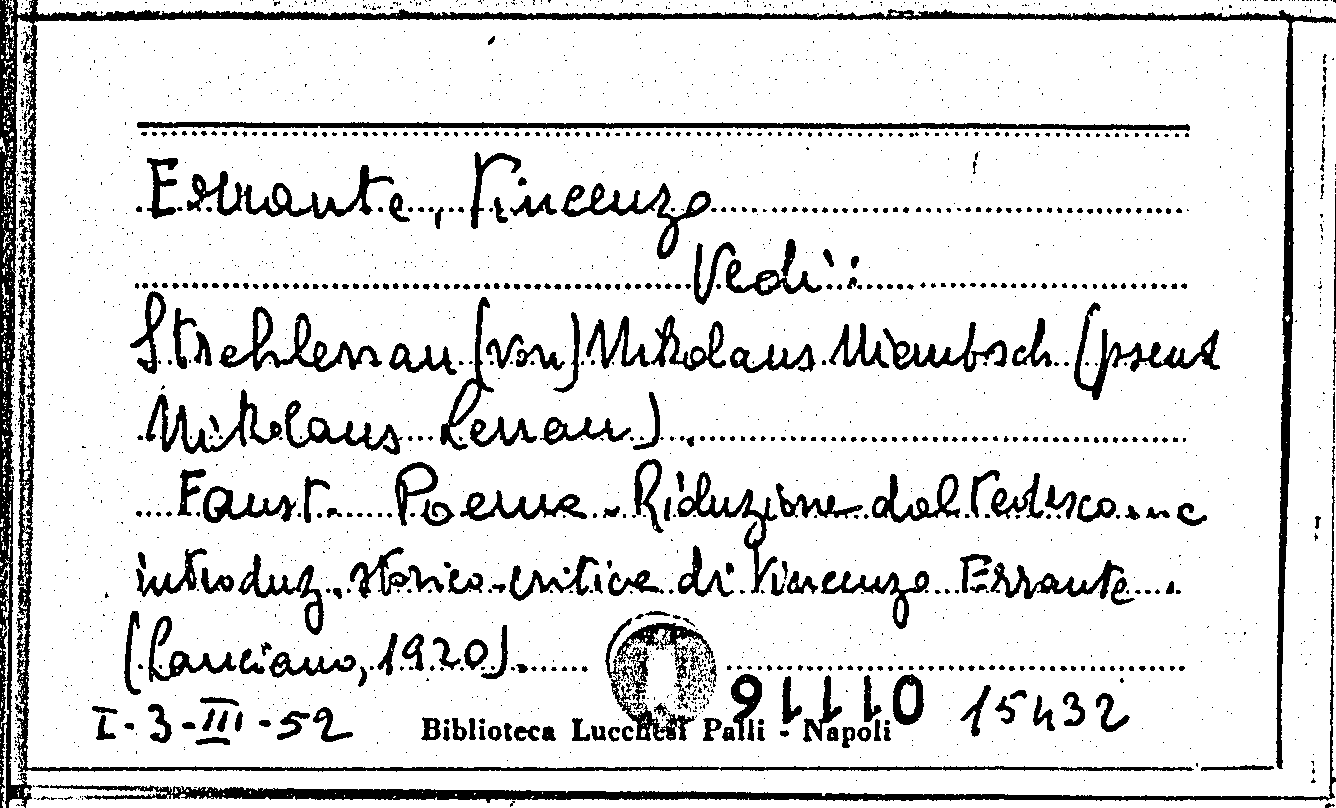 Errante, Vincenzo
Vedi:
Strehlenau (von) Nikolaus Niembsch (pseud
Nikolaus Lenau).
Faust. Poema. Riduzione dal tedesco e
introduz. storico-critica di Vincenzo Errante.
(Lanciano, 1920).
I-3-III-52 Biblioteca Lucchesi Palli - Napoli 011116 15432